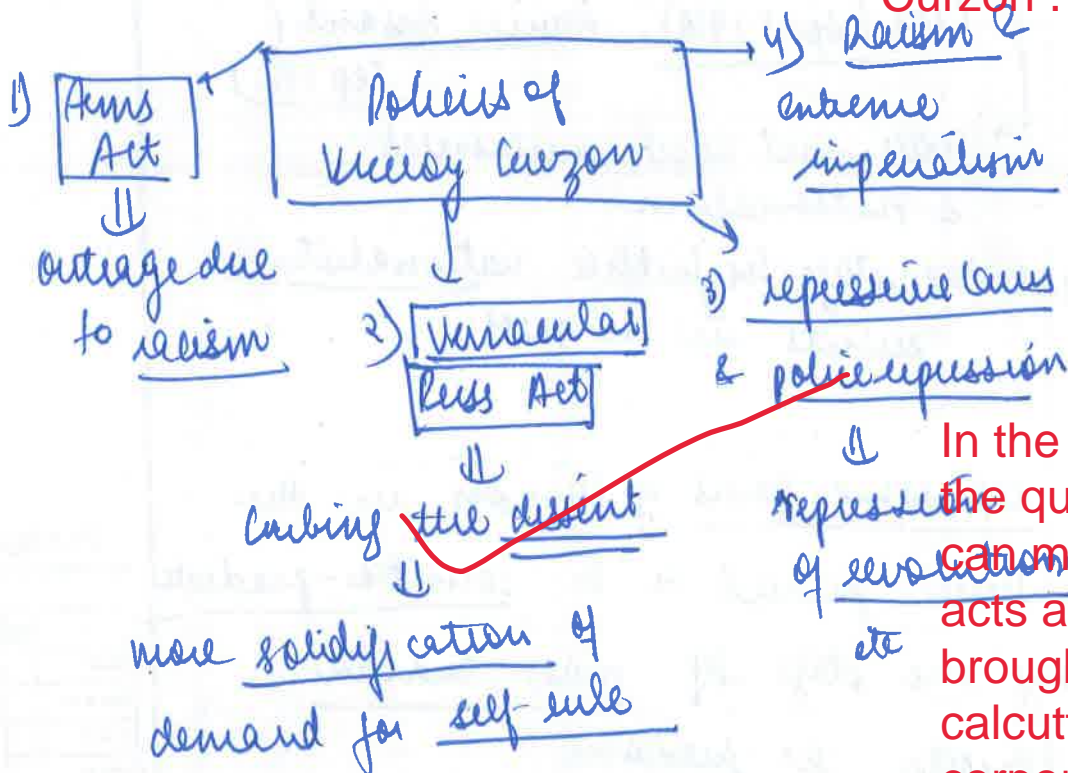 Curzon.
Policies of
Viceroy Curzon
1) Arms
Act
outrage due
to racism
2) Vernacular
Press Act
Curbing the dissent
more solidification of
demand for self-rule
3) repressive laws
& police repression
repression
of revolution
etc
4) Racism &
extreme
imperialism
In the
the qu
can m
acts a
brough
calcutt